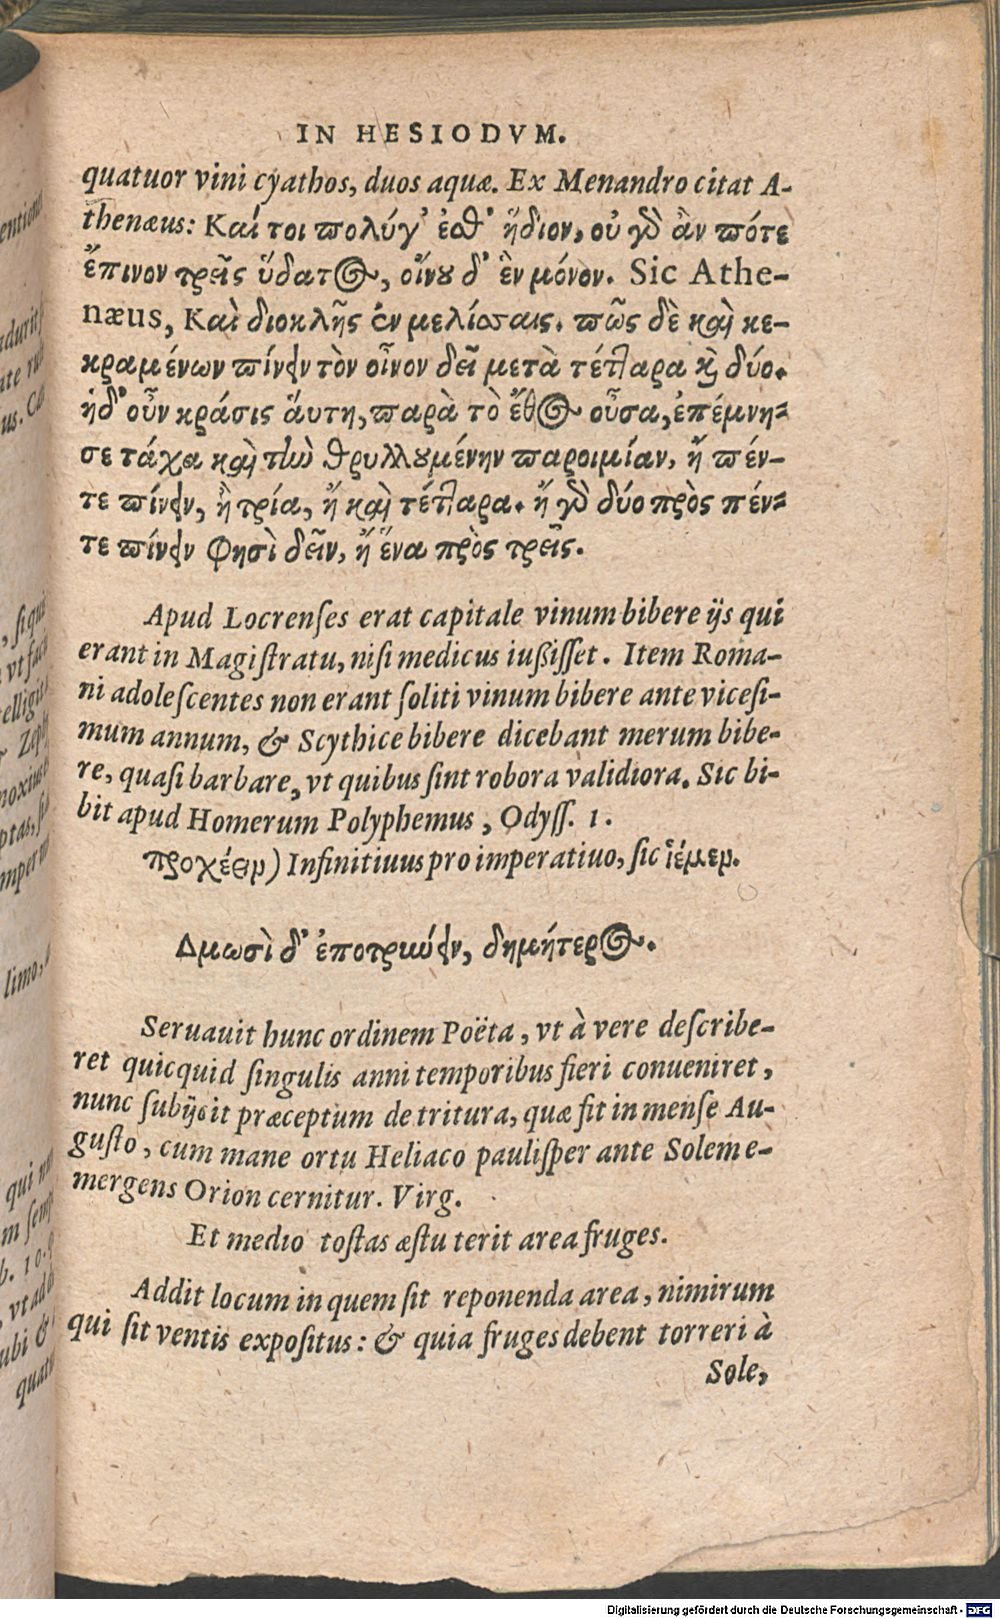 IN HESIODVM.
quatuor vini cyathos, duos aquæ. Ex Menandro citat A-
thenæus: Καί τοι πολύγ’ ἐσθ’ ἥδιον, οὐ γὸ ἂν πότε
ἔπινον τρεῖς ὕδατος, οἴνου δ’ ἓν μόνον. Sic Athe-
næus, Καὶ διοκλῆς ἐν μελίσσαις. πῶς δὲ καὶ κε-
κραμένων πίνειν τὸν οἶνον δεῖ μετὰ τέτταρα κὶ δύο.
ἡδ’ οὖν κράσις ἅυτη, παρὰ τὸ ἔθος οὖσα, ἐπέμνη-
σε τάχα καὶ τὼ θρυλλουμένην παροιμίαν, ἢ πέν-
τε πίνειν, ἢ τρία, ἢ καὶ τέτταρα. ἤ γὸ δύο πρὸς πέν-
τε πίνειν φησὶ δεῖν, ἢ ἕνα πρὸς τρεῖς.
Apud Locrenſes erat capitale vinum bibere ijs qui
erant in Magiſtratu, niſi medicus iußiſſet. Item Roma-
ni adoleſcentes non erant ſoliti vinum bibere ante viceſi-
mum annum, & Scythice bibere dicebant merum bibe-
re, quaſi barbare, vt quibus ſint robora validiora. Sic bi-
bit apud Homerum Polyphemus, Odyſſ. 1.
προχέειν) Infinitiuus pro imperatiuo, ſic ἱέμεν.
Δμωσὶ δ’ ἐποτρύνειν, δημήτερος.
Seruauit hunc ordinem Poëta, vt à vere deſcribe-
ret quicquid ſingulis anni temporibus fieri conueniret,
nunc ſubijcit præceptum de tritura, quæ fit in menſe Au-
guſto, cum mane ortu Heliaco pauliſper ante Solem e-
mergens Orion cernitur. Virg.
Et medio toſtas æſtu terit area fruges.
Addit locum in quem ſit reponenda area, nimirum
qui ſit ventis expoſitus: & quia fruges debent torreri à
Sole,
Digitalisierung gefördert durch die Deutsche Forschungsgemeinschaft - DFG